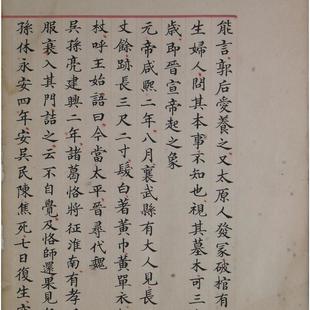 能言郭后愛養之又太原人發冢破棺有
生婦人問其本事不知也視其墓木可三
歲即晉宣帝起之象
元帝咸熙二年八月襄武縣有大人見長
丈餘跡長三尺二寸髮白著黃巾黃單衣
杖呼王始語曰今當太平晉尋代魏
吳孫亮建興二年諸葛恪將征淮南有孝
服衰入其門詰之云不自覺及恪師還果見
孫休永安四年安吳民陳焦死七日復生